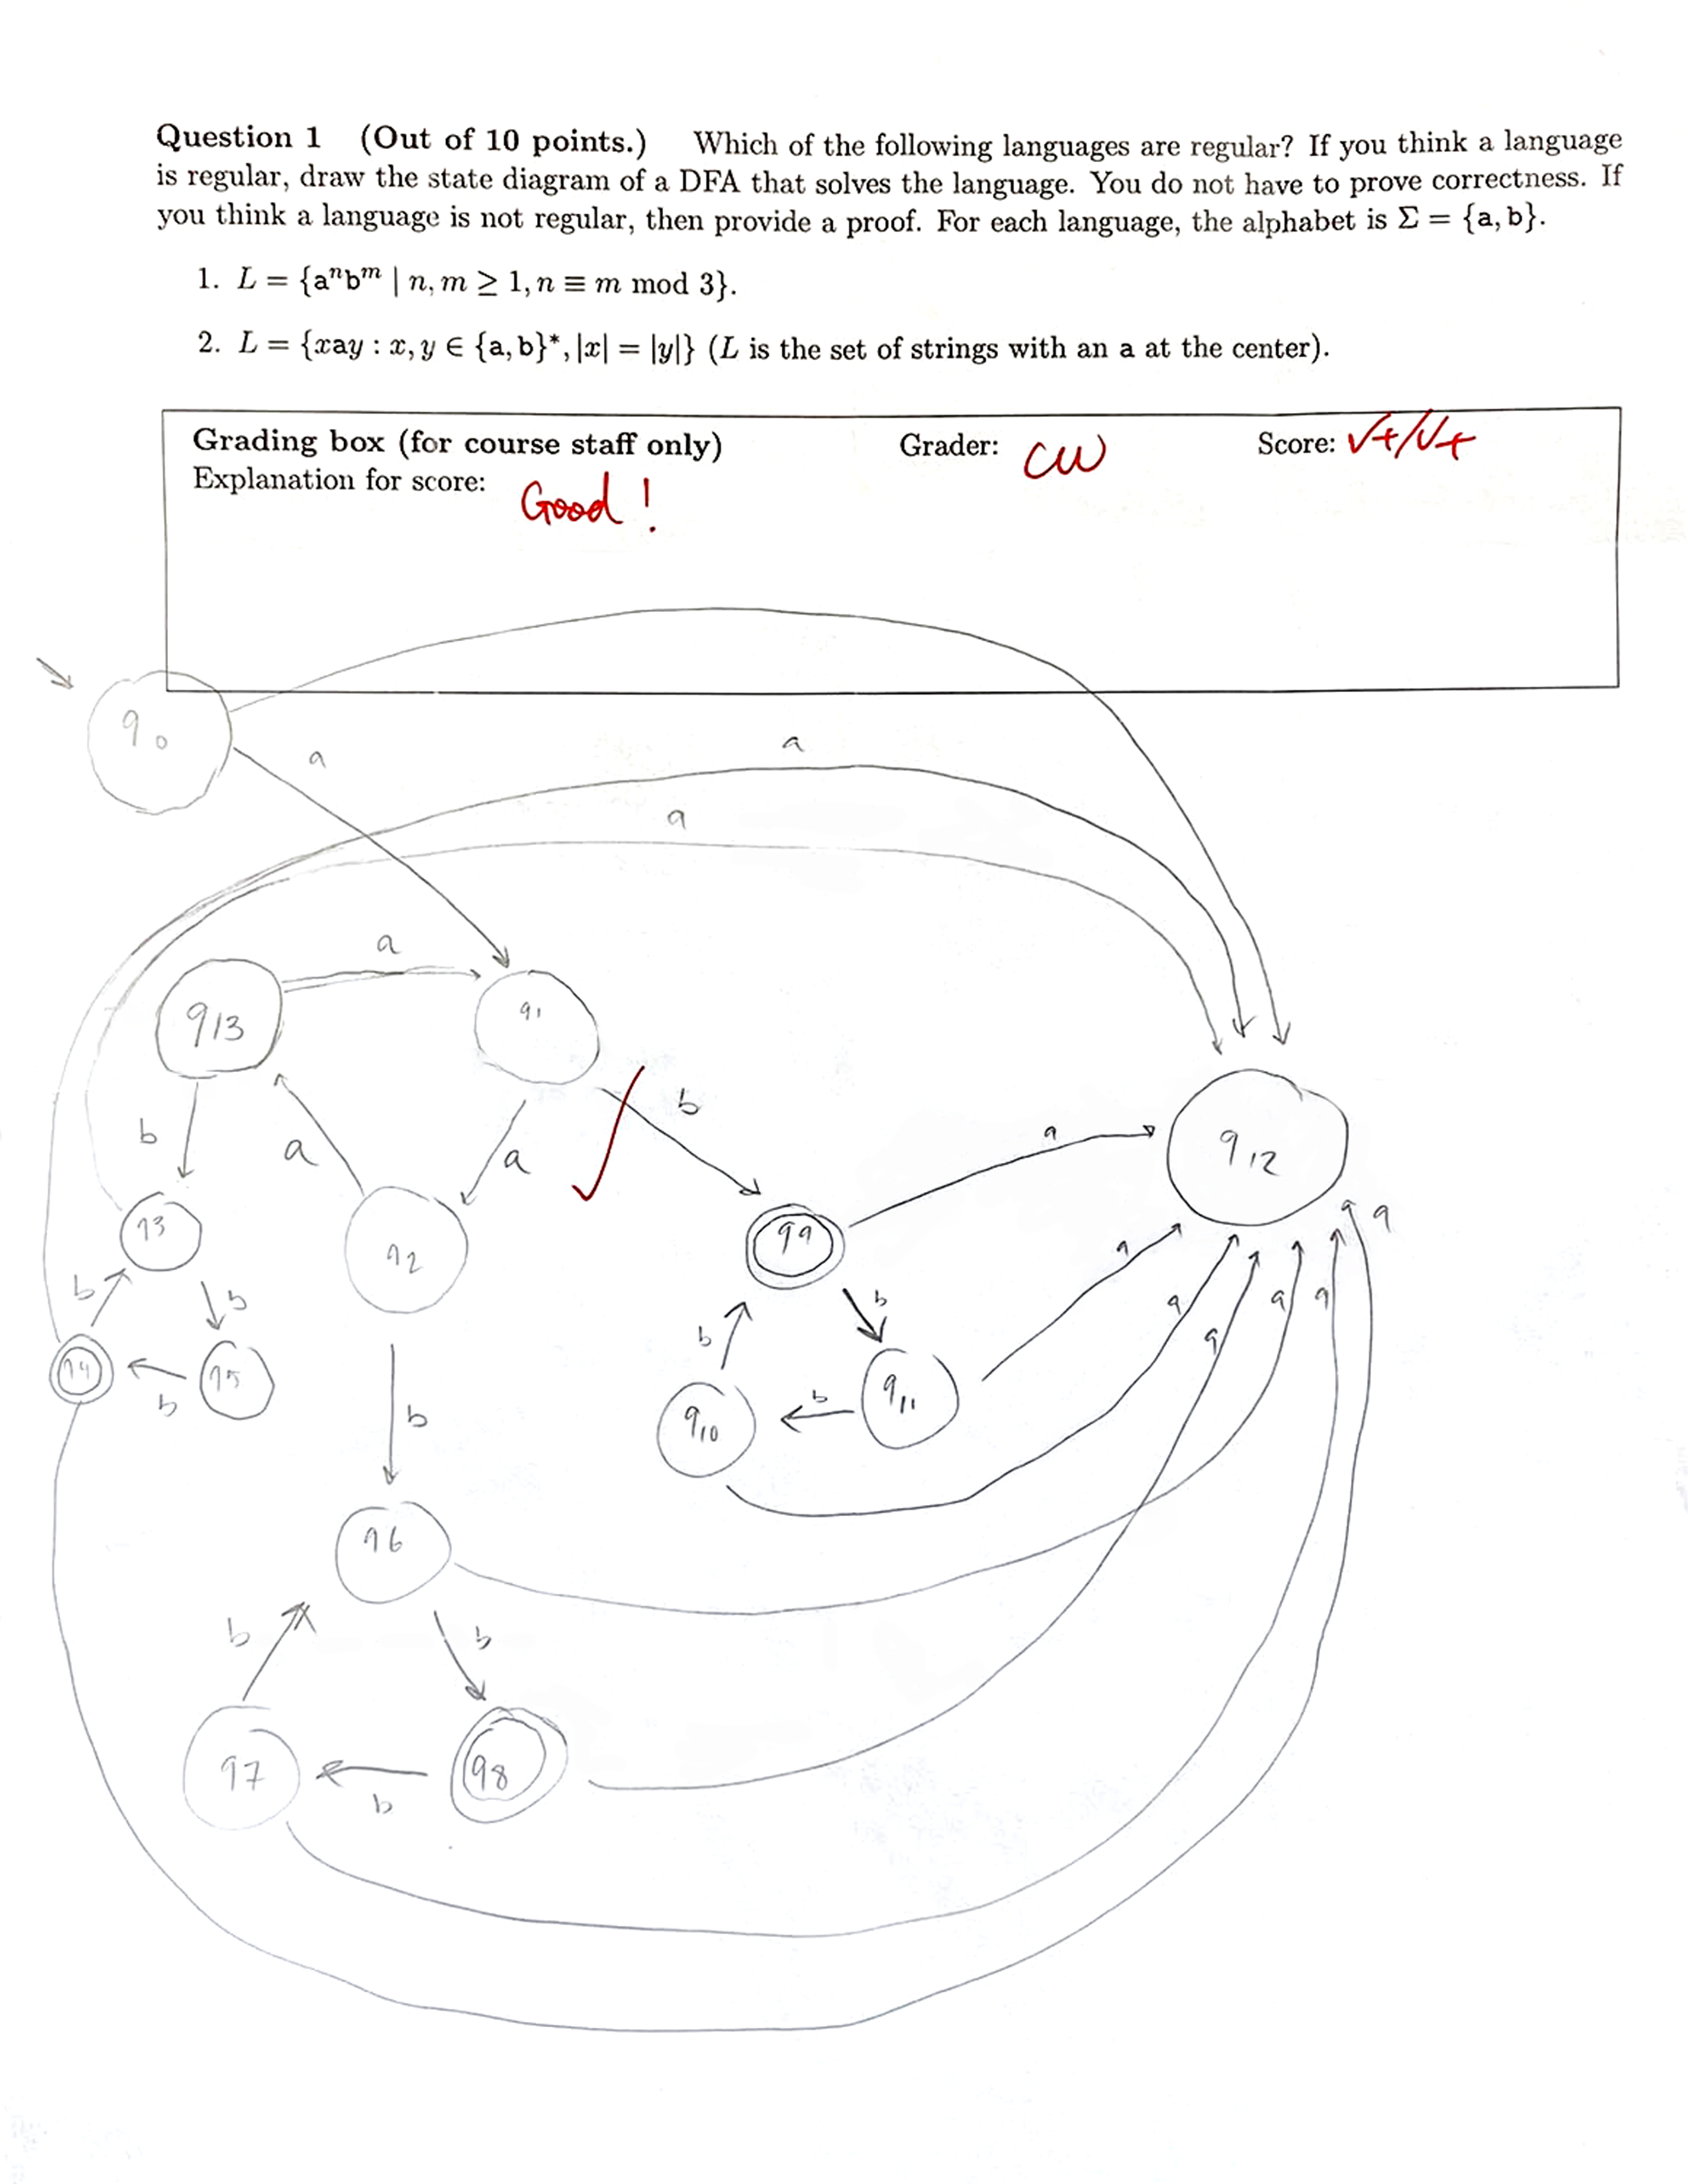 Question 1 (Out of 10 points.) Which of the following languages are regular? If you think a language
is regular, draw the state diagram of a DFA that solves the language. You do not have to prove correctness. If
you think a language is not regular, then provide a proof. For each language, the alphabet is Σ = {a, b}.
1. L = {aⁿbᵐ | n, m ≥ 1, n ≡ m mod 3}.
2. L = {xay : x, y ∈ {a, b}*, |x| = |y|} (L is the set of strings with an a at the center).
Grading box (for course staff only) Grader: CW Score: √+/√+
Explanation for score: Good!
q0
a
a
a
a
q13
q1
b
b
a
a
a
q12
q3
q2
q9
a
a
b
b
b
a
a
a
a
b
b
q4
q5
b
b
b
q10
q11
q6
b
b
q7
q8
b